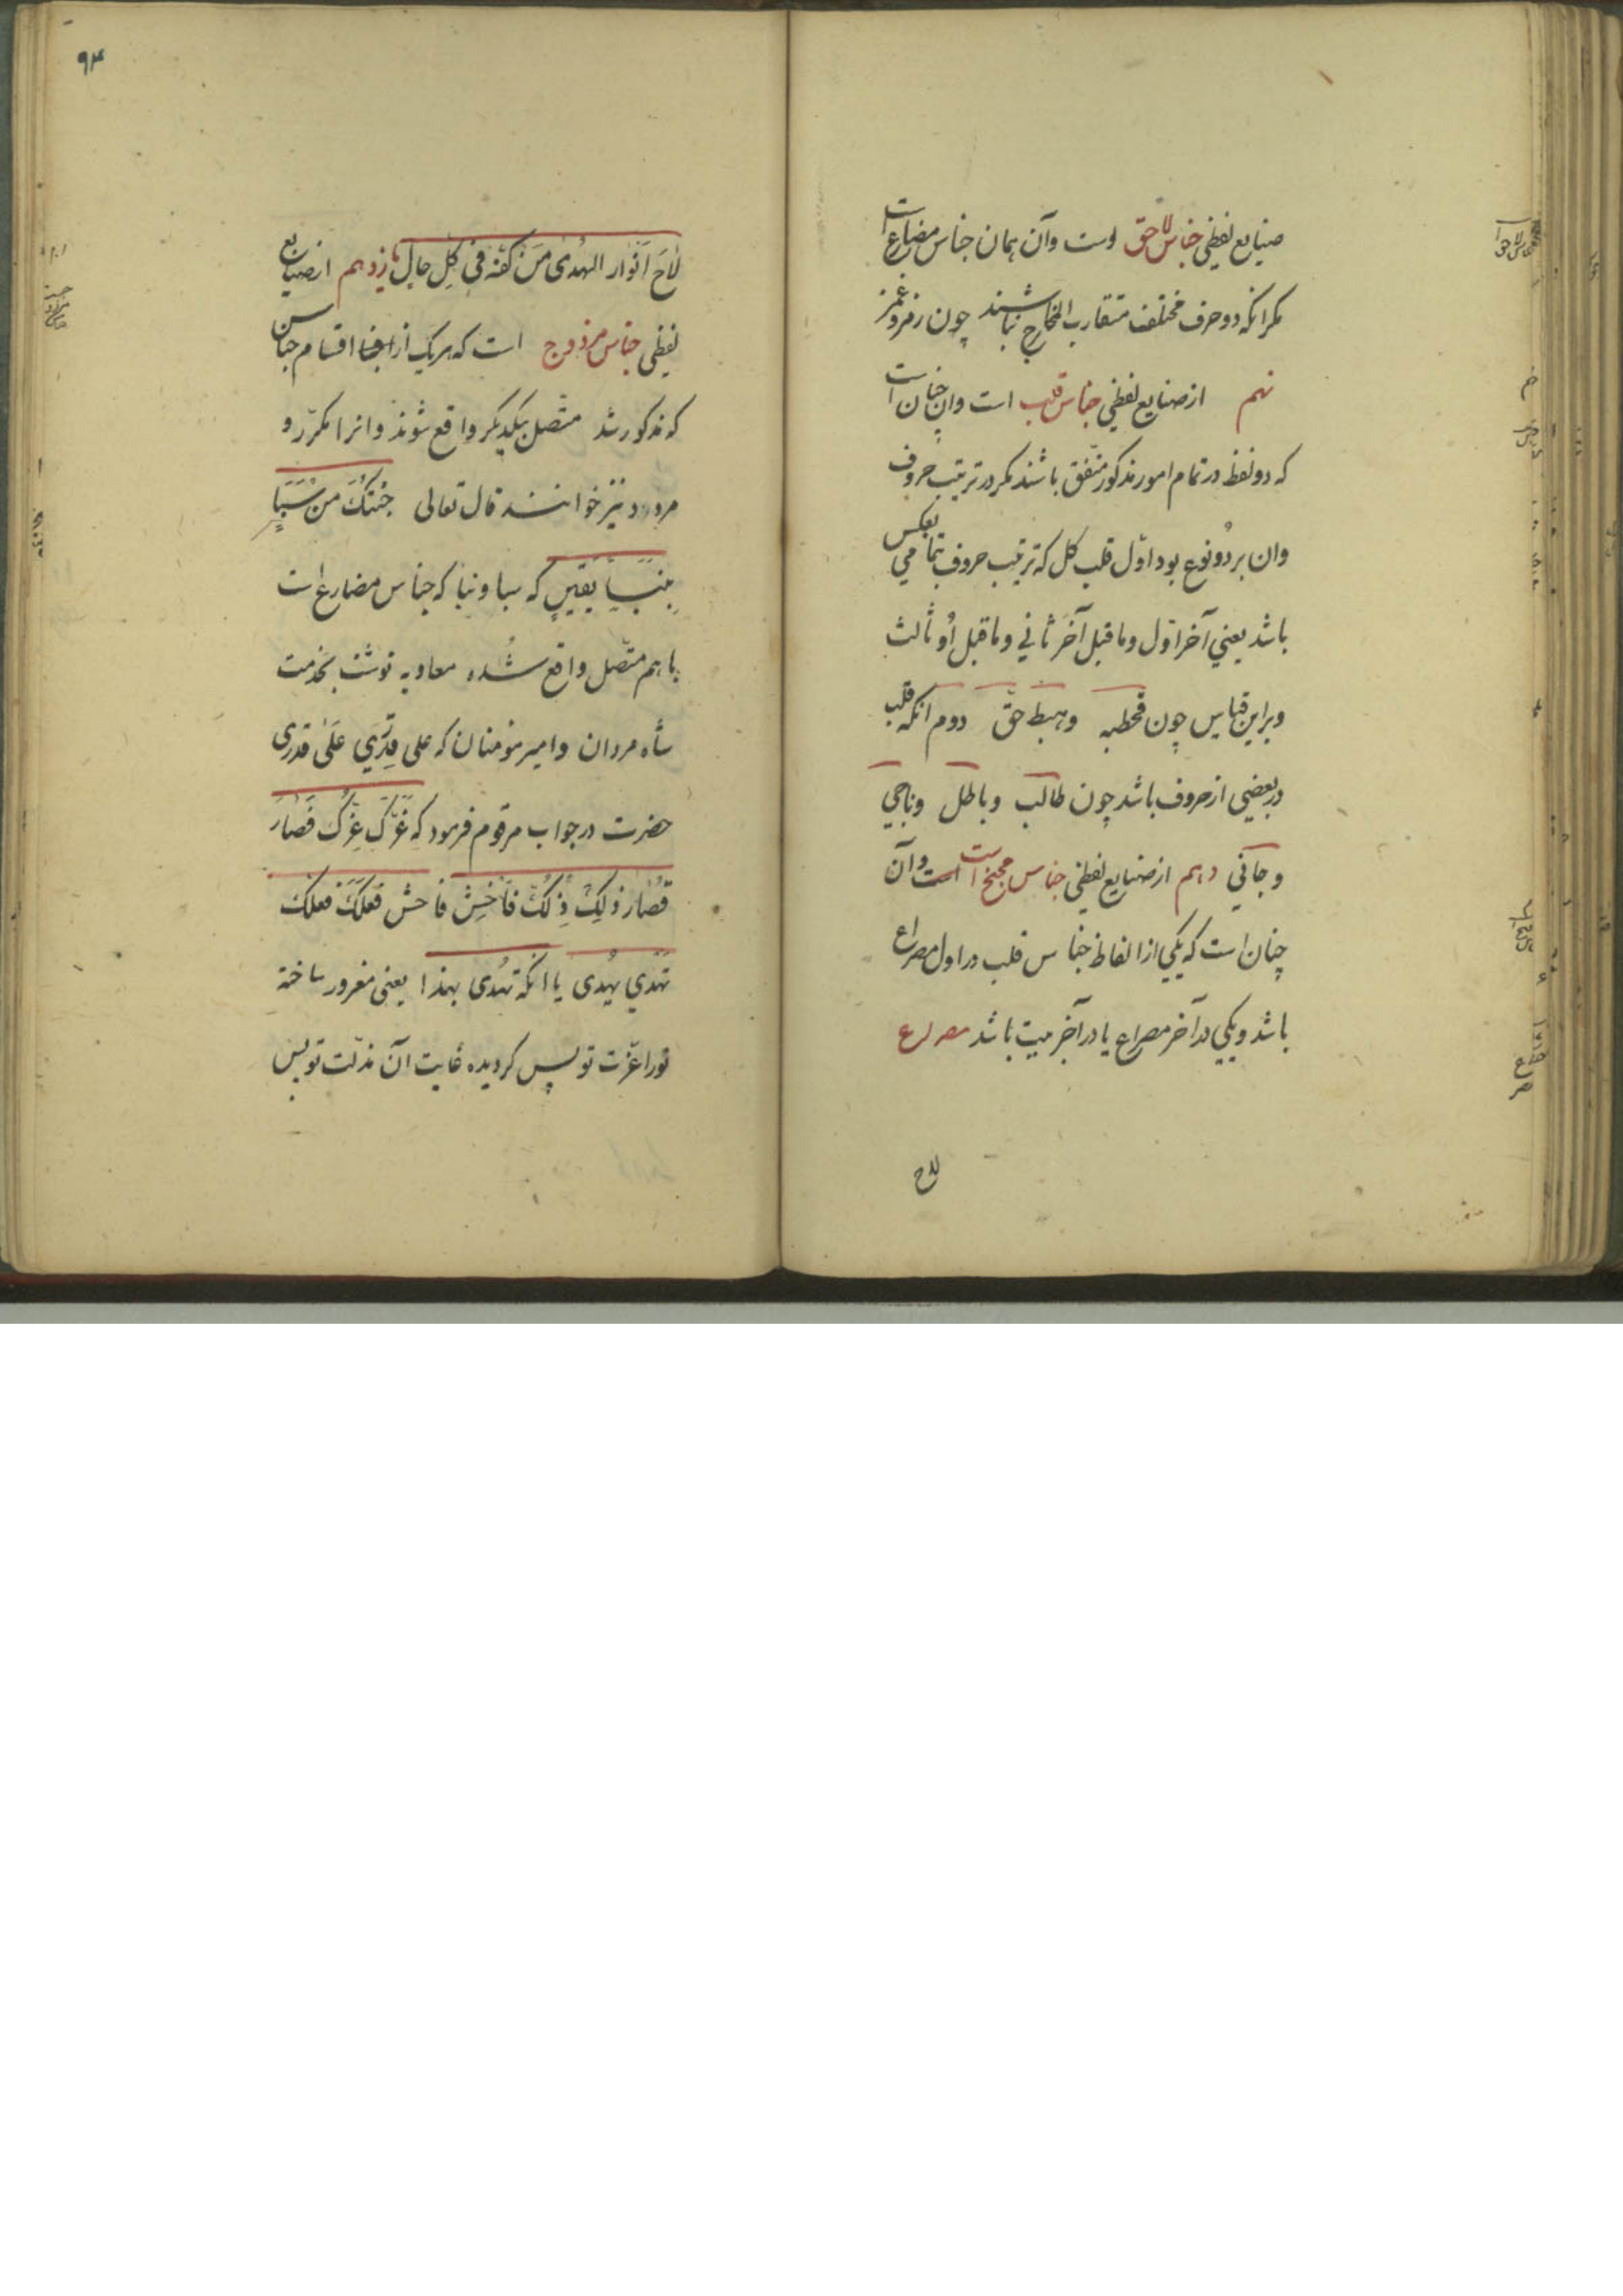 صنایع لفظی جناس لاحق است وآن همان جناس مضارع است
مکر انکه دو حرف مختلف متقارب المخارج نباشند چون رمز وغمز
نهم از صنایع لفظی جناس قلب است وان چنان است
که دو لفظ در تمام امور مذکور متفق باشند مکر در ترتیب حروف
وان بر دو نوع بود اول قلب کل که ترتیب حروف بتمامی بعکس
باشد یعنی آخر اول وماقبل آخر ثانی وماقبل او ثالث
وبراین قیاس چون قحطبه وهبط حق دوم انکه قلب
در بعضی از حروف باشد چون طالب وباطل وناجی
وجانی دهم از صنایع لفظی جناس مجنح است وآن
چنان است که یکی از الفاظ جناس قلب در اول مصراع
باشد ویکی در آخر مصراع یا در آخر بیت باشد مصراع
لاح
۹۴
لاحَ اَنوار الهُدی مَن کفّه فی کلِّ حال یازدهم از صنایع
لفظی جناس مزدوج است که هریک از اقسام جناس
که مذکور شد متّصل بیکدیکر واقع شوند وانرا مکرّر و
مردد نیز خوانند قال تعالی جئتکَ من سَبَإٍ
بِنَبَإٍ یَقینٍ که سبا ونبا که جناس مضارع است
باهم متّصل واقع شده معاویه نوشت بخدمت
شاه مردان وامیر مؤمنان که علی قِدرَی عَلَی قدری
حضرت در جواب مرقوم فرمود که غَرَّکَ عِزُّکَ فَصارَ
قُصارُ ذلِکَ ذُلُّکَ فَاخشَ فاحش فِعلِکَ فعلک
تَهدی بهذا یا انکه تُهدی بهذا یعنی مغرور ساخته
تورا عزّت تو پس کردیده غایت آن مذلّت تو پس